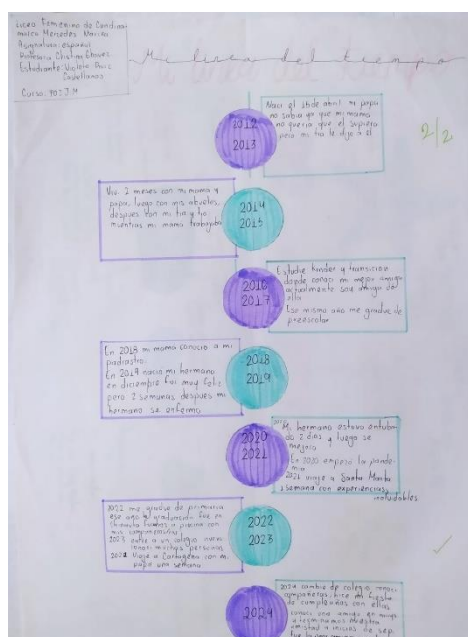 Liceo Femenino de Cundina
marca Mercedes Nariño
Asignatura: español
Profesora Cristina Chaves
Estudiante: Violeta Ruiz
Castellanos
Curso: 702 J.M
Mi linea del tiempo
2/2
2012
2013
Naci el 16 de abril mi papa
no sabia ya que mi mama
no queria que el supiera
pero mi tia le dijo a el
2014
2015
Vivi 2 meses con mi mama y
papa, luego con mis abuelos,
despues con mi tia y tio
mientras mi mama trabajaba
2016
2017
Estudie kinder y transicion
donde conoci mi mejor amiga
actualmente soy amiga de
ella
Ese mismo año me gradue de
preescolar
2018
2019
En 2018 mi mama conocio a mi
padrastro.
En 2019 nacio mi hermano
en diciembre fui muy feliz
pero 2 semanas despues mi
hermano se enfermo
2020
2021
Mi hermano estuvo entuba-
do 2 dias y luego se
mejoro
En 2020 empezo la pande-
mia
2021 viaje a Santa Marta
1 semana con experiencias
inolvidables
2022
2023
2022 me gradue de primaria
ese año la graduacion fue en
fuimos a piscina con
mis compañeros
2023 entre a un colegio nuevo
conoci muchas personas
2024 viaje a Cartagena con mi
papa una semana
2024
2024 cambie de colegio, conoci
compañeras, hice mi fiesta
de cumpleaños con ellas
conoci una amiga
y terminamos nuestra
amistad a inicios de sep